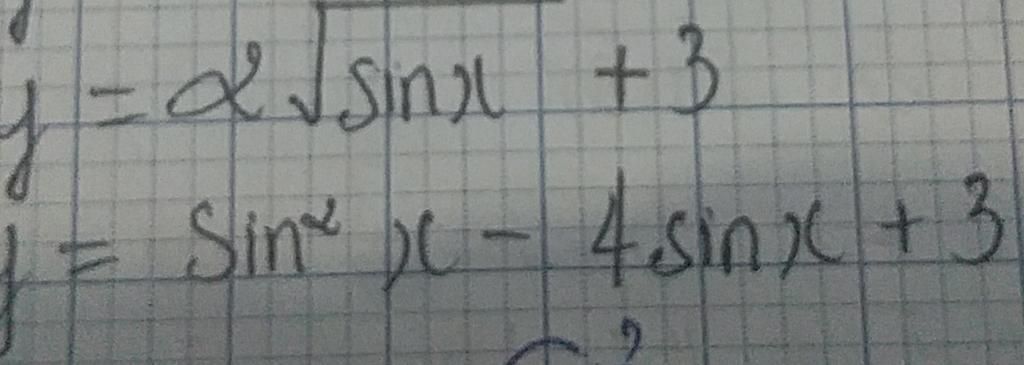 y = 2√sinx + 3
y = sin² x - 4sinx + 3